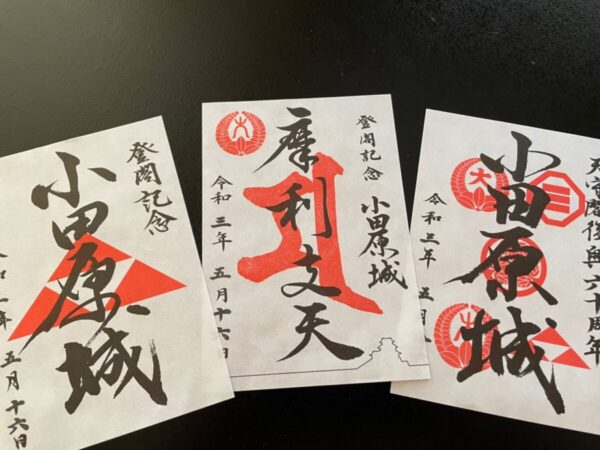 登閣記念
小田原城
令和三年 五月十六日
登閣記念 小田原城
摩利支天
令和三年 五月十六日
天守閣復興六十周年
小田原城
令和三年 五月
大